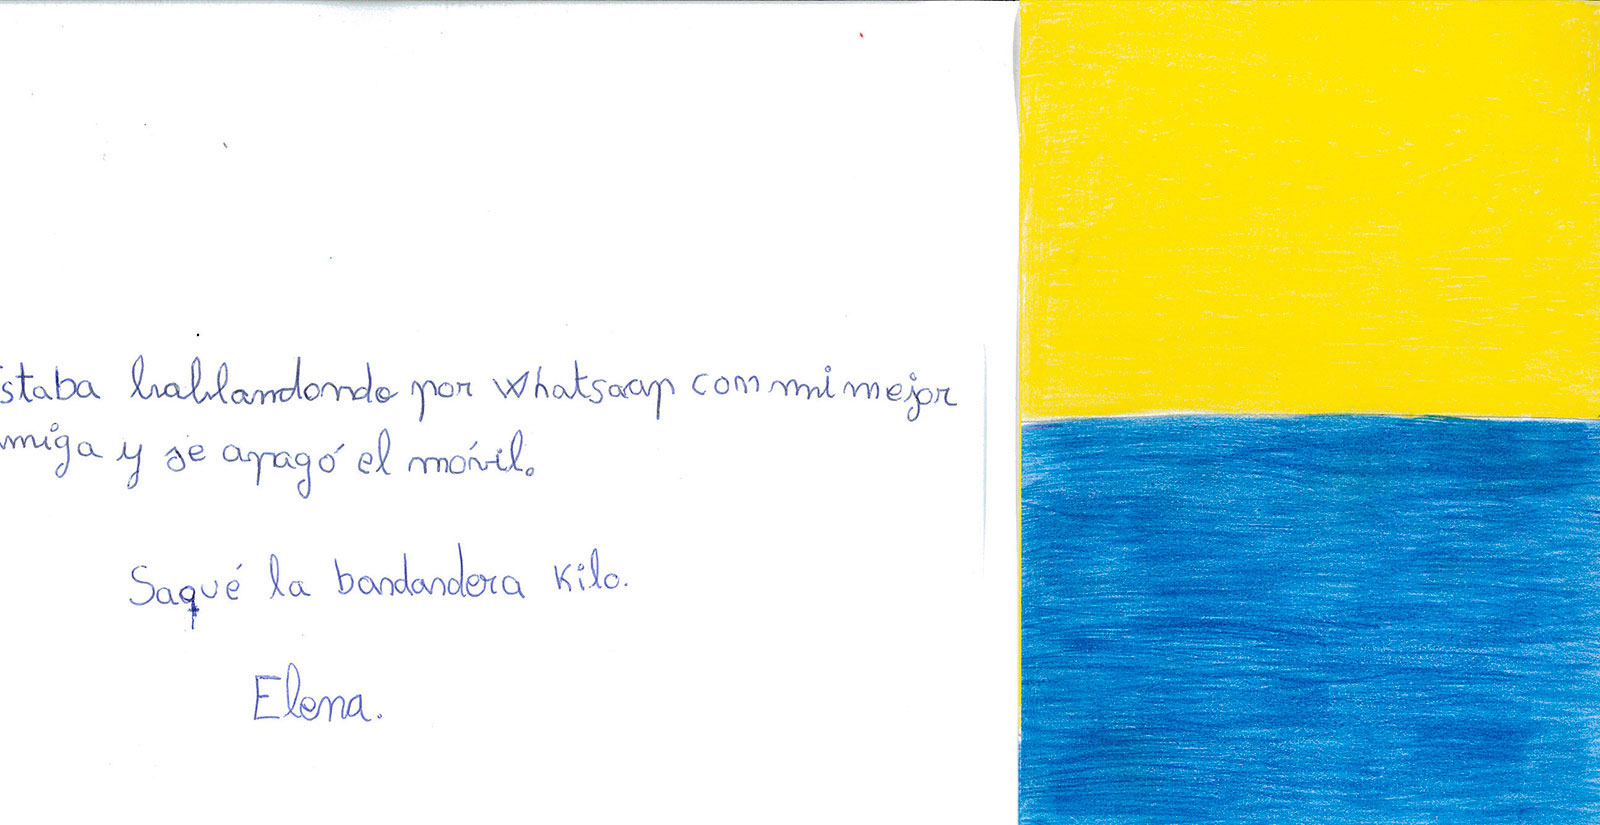 staba hablandondo por whatsaap con mi mejor
miga y se apagó el móvil.
Saqué la bandandera Kilo.
Elena.